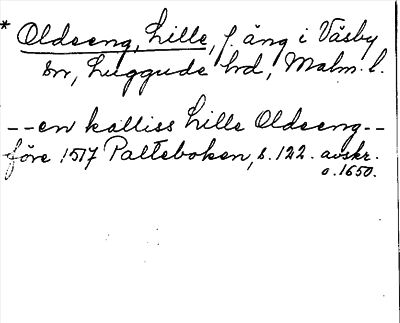 * Oldeeng, Lille, f. äng i Väsby
sn, Luggude hd, Malm. l.
--en kalliss Lille Oldeeng--
före 1517 Palteboken, s. 122. avskr.
o. 1650.